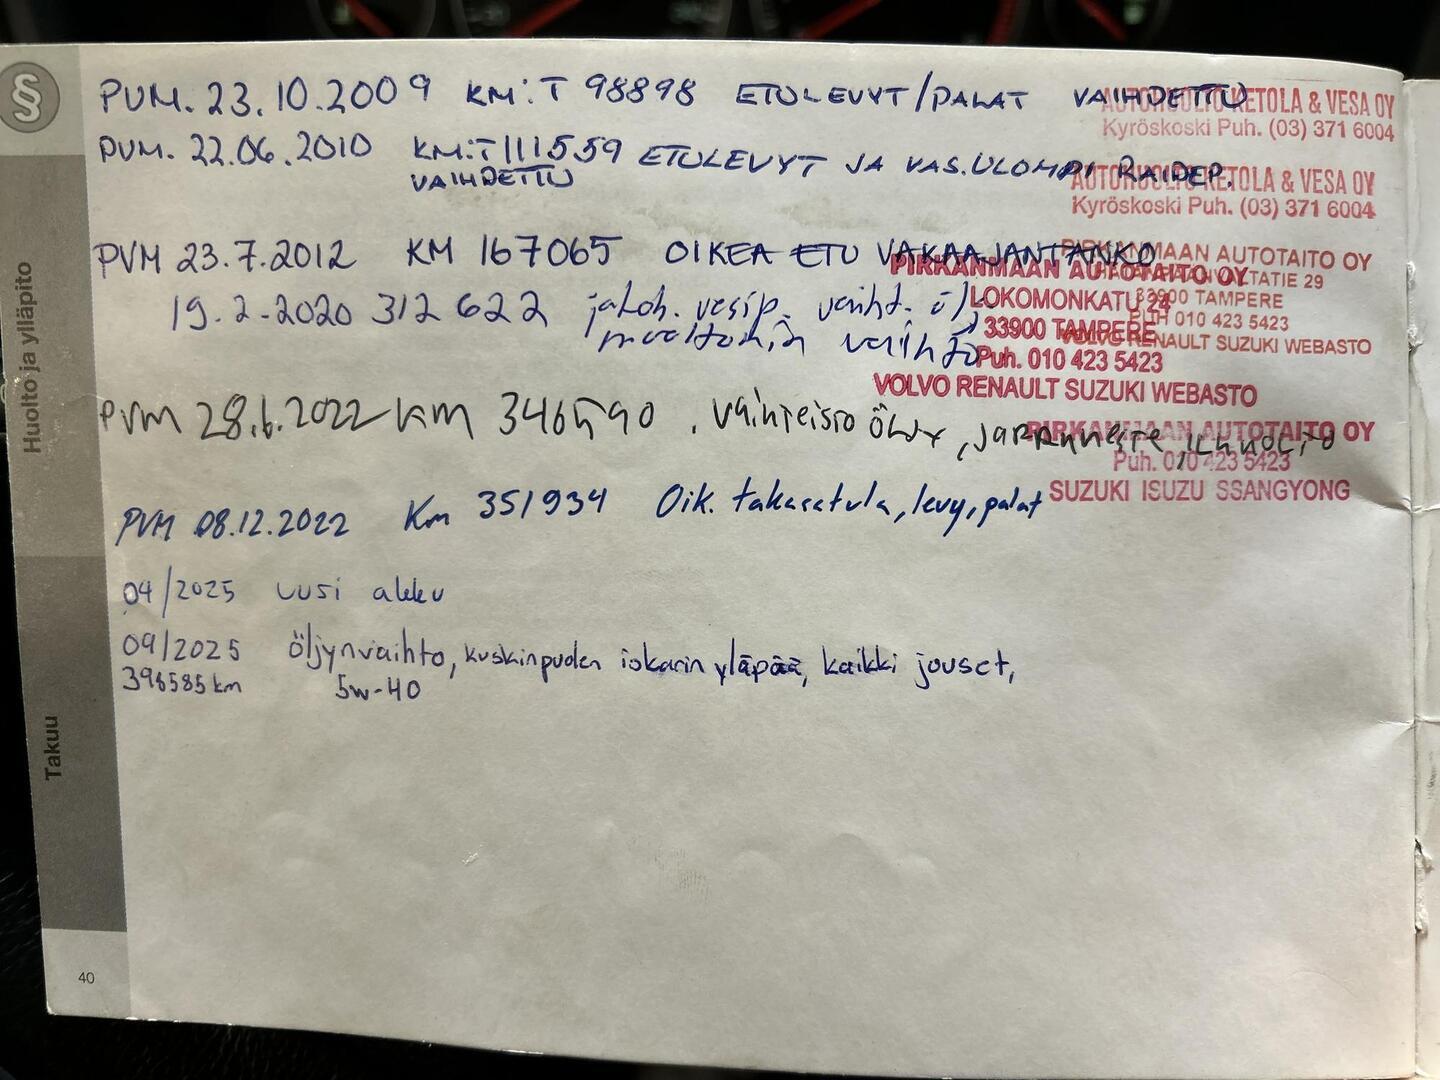 PVM. 23.10.2009 KM:T 98898 ETULEVYT/PALAT VAIHDETTU
AUTOHUOLTO RETOLA & VESA OY
Kyröskoski Puh. (03) 371 6004
PVM. 22.06.2010 KM:T 111559 ETULEVYT JA VAS.ULOMPI RAIDEP.
VAIHDETTU
AUTOHUOLTO RETOLA & VESA OY
Kyröskoski Puh. (03) 371 6004
PVM 23.7.2012 KM 167065 OIKEA ETU VAKAAJANTANKO
PIRKANMAAN AUTOTAITO OY
33900 TAMPERE
PUH 010 423 5423
VOLVO RENAULT SUZUKI WEBASTO
19.2-2020 312 622 jakoh. vesip. vaiht. öljy
moottorin vaihto
PIRKANMAAN AUTOTAITO OY
LOKOMONKATU 24
33900 TAMPERE
Puh. 010 423 5423
VOLVO RENAULT SUZUKI WEBASTO
PVM 28.6.2022 KM 346590 , vaihteisto öljy, jarruneste,
PIRKANMAAN AUTOTAITO OY
Puh. 010 423 5423
SUZUKI ISUZU SSANGYONG
PVM 08.12.2022 Km 351934 Oik. takasatula, levy, palat
04/2025 uusi akku
09/2025 öljynvaihto, kuskinpuolen iskarin yläpää, kaikki jouset,
398585 km 5w-40
Huolto ja ylläpito
Takuu
40